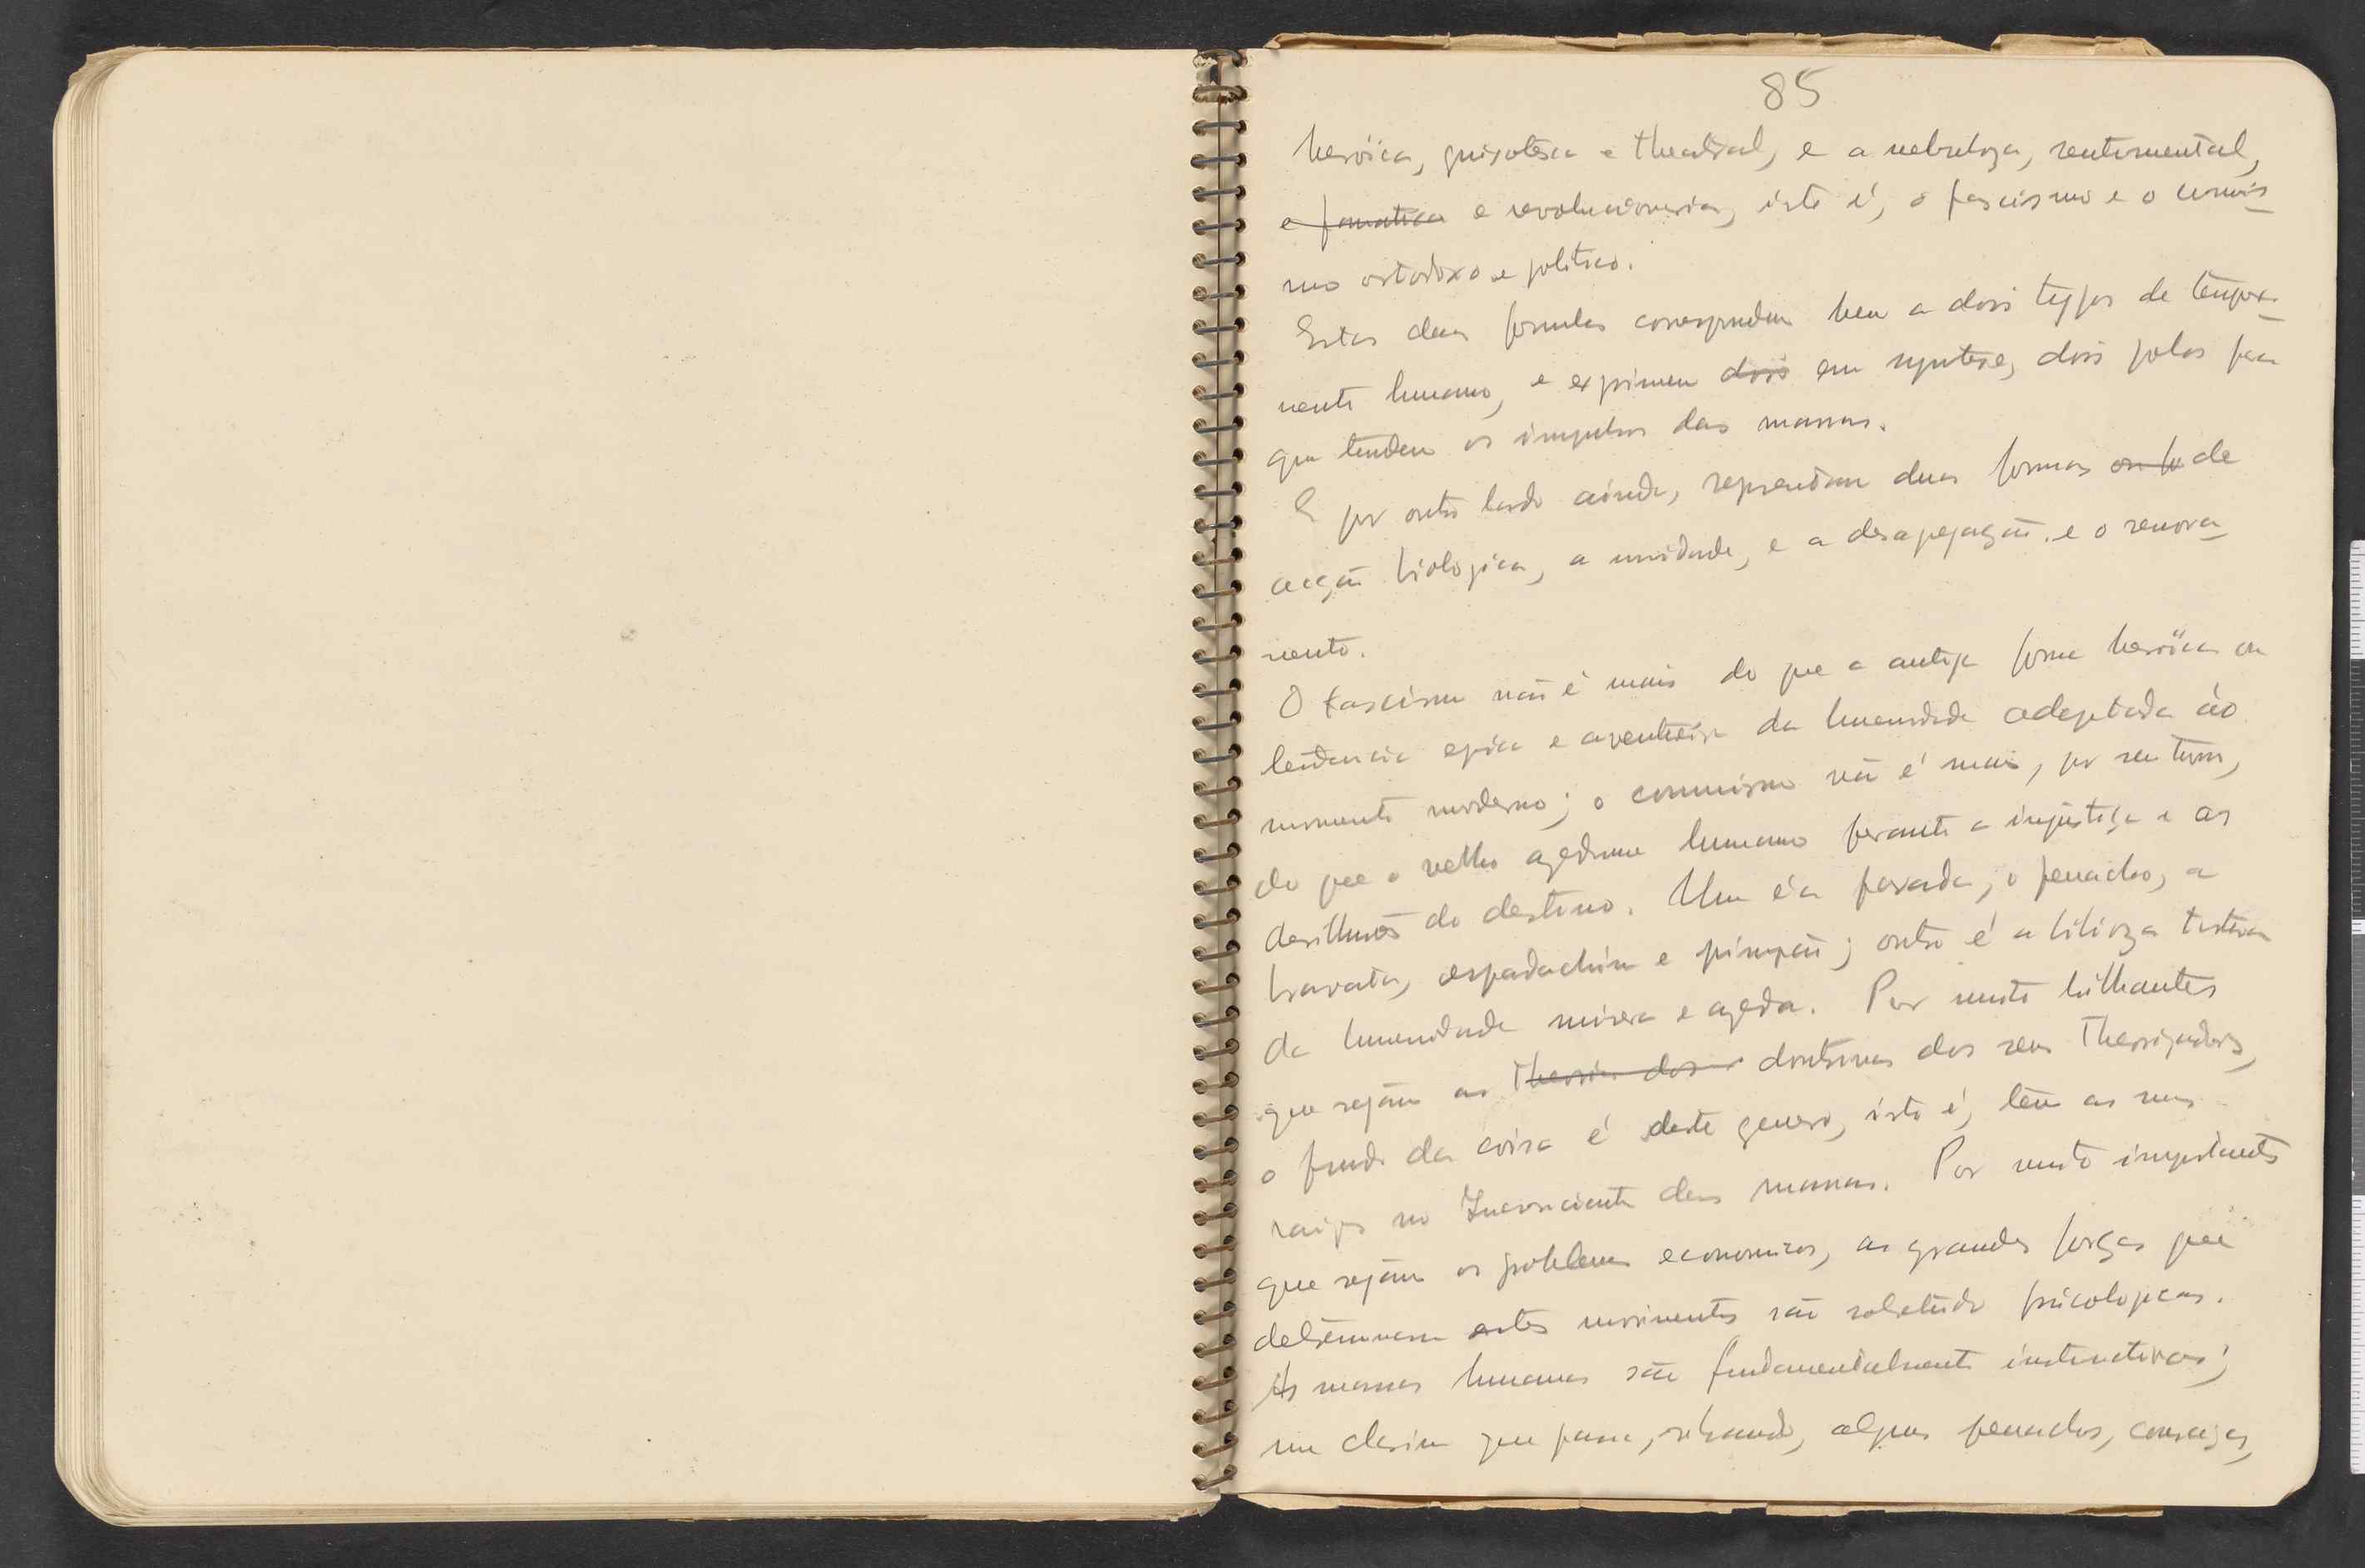 85
heroica, quixotesca e theatral, e a nebuloza, sentimental,
e fanatica e revolucionaria, isto é, o fascismo e o comunis
mo ortodoxo e politico.
Estas duas formulas correspondem bem a dois typos de tempera
mento humano, e exprimem dois em syntese, dois polos para
que tendem os impulsos das massas.
E por outro lado ainda, representam duas formas de
acção biologica, a unidade, e a desagregação e o renova
mento.
O fascismo não é mais do que a antiga forma heroica ou
tendencia epica e aventureira da humanidade adeptada ao
momento moderno; o comunismo não é mais, por seu turno,
do que o velho azedume humano perante a injustiça e as
desillusões do destino. Um é a parada, o penacho, a
bravata, espadachim e pimpão; outro é a bilioza tristeza
da humanidade misera e azeda. Por muito brilhantes
que sejam as theorias dos doutrinas dos seus theorizadores,
o fundo da coisa é deste genero, isto é, tem as suas
raizes no Inconsciente das massas. Por muito importantes
que sejam os problemas economicos, as grandes forças que
determinam estes movimentos são sobretudo psicologicas.
As massas humanas são fundamentalmente instinctivas;
um clarim que passa, soando, alguns penachos, couraças,